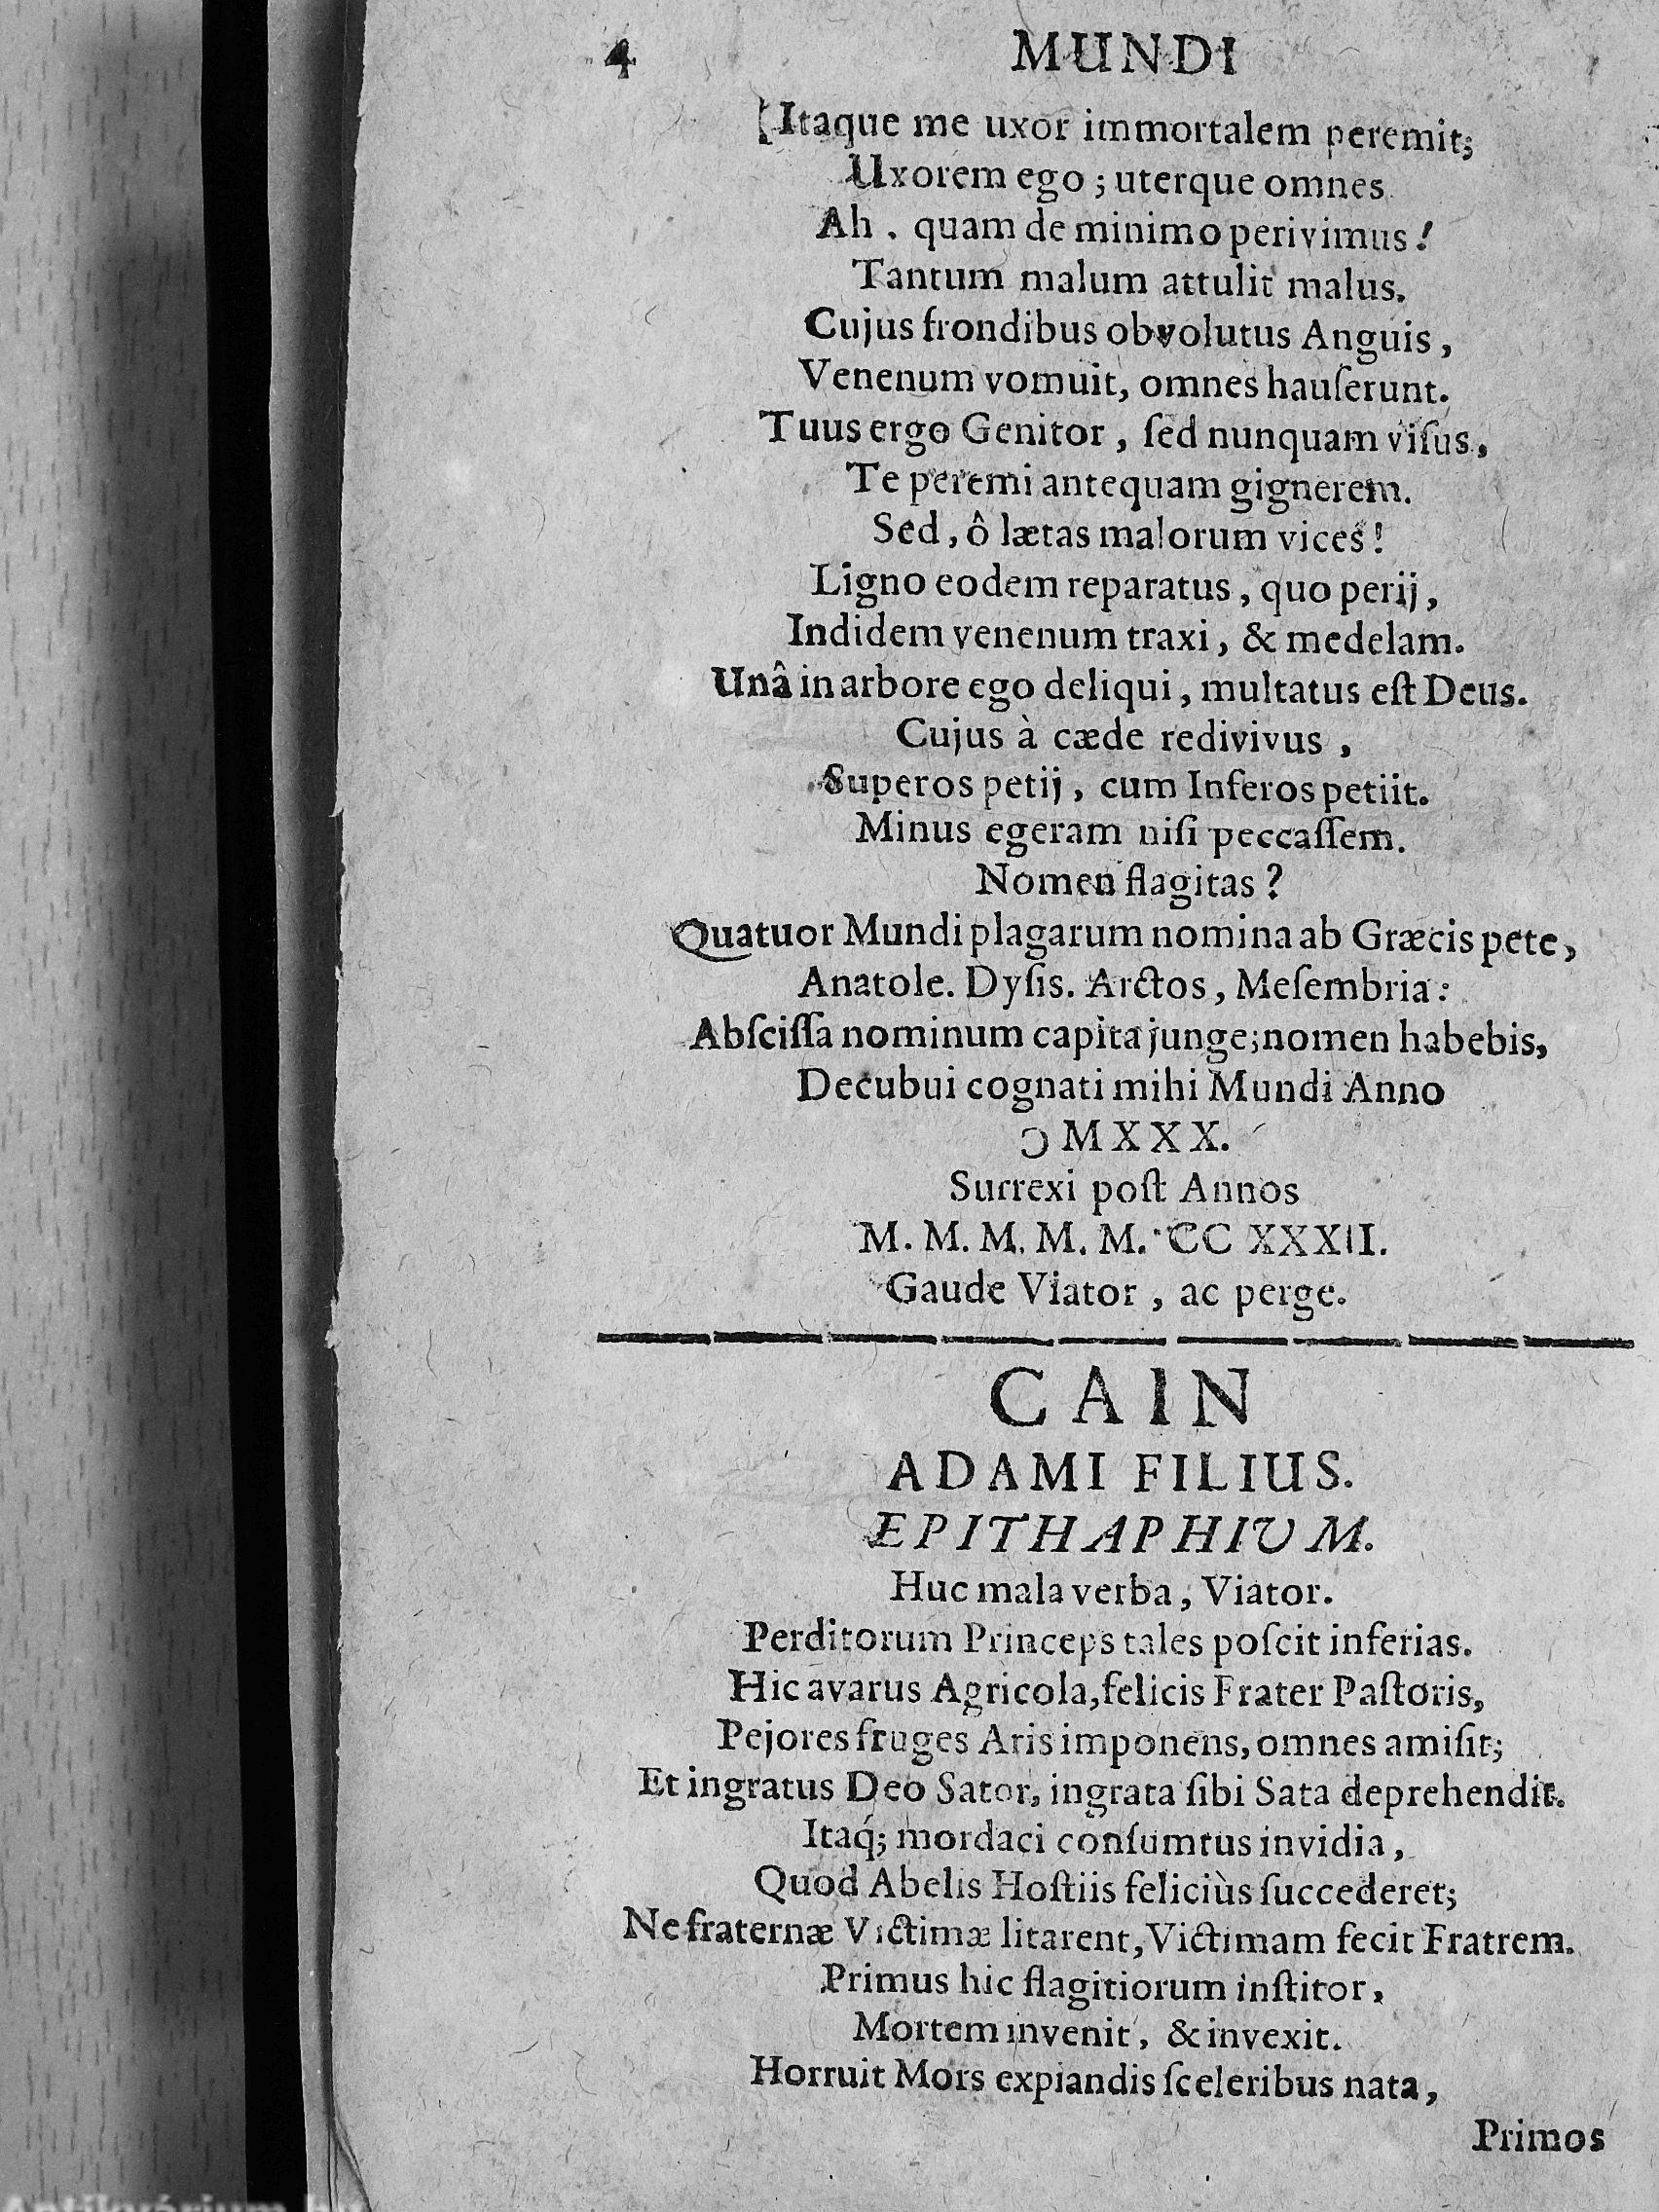 4 MUNDI
Itaque me uxor immortalem peremit;
Uxorem ego; uterque omnes
Ah. quam de minimo perivimus!
Tantum malum attulit malus.
Cujus frondibus obvolutus Anguis,
Venenum vomuit, omnes hauſerunt.
Tuus ergo Genitor, ſed nunquam viſus,
Te peremi antequam gignerem.
Sed, ô lætas malorum vices!
Ligno eodem reparatus, quo perij,
Indidem venenum traxi, & medelam.
Unâ in arbore ego deliqui, multatus eſt Deus.
Cujus à cæde redivivus,
Superos petij, cum Inferos petiit.
Minus egeram niſi peccaſſem.
Nomen flagitas?
Quatuor Mundi plagarum nomina ab Græcis pete,
Anatole. Dyſis. Arctos, Meſembria:
Abſciſſa nominum capita junge; nomen habebis,
Decubui cognati mihi Mundi Anno
ↄ M X X X.
Surrexi poſt Annos
M. M. M. M. M. CC XXXII.
Gaude Viator, ac perge.
CAIN
ADAMI FILIUS.
EPITHAPHIUM.
Huc mala verba, Viator.
Perditorum Princeps tales poſcit inferias.
Hic avarus Agricola, felicis Frater Paſtoris,
Pejores fruges Aris imponens, omnes amiſit;
Et ingratus Deo Sator, ingrata ſibi Sata deprehendit.
Itaq́; mordaci conſumtus invidia,
Quod Abelis Hoſtiis feliciùs ſuccederet;
Ne fraternæ Victimæ litarent, Victimam fecit Fratrem.
Primus hic flagitiorum inſtitor,
Mortem invenit, & invexit.
Horruit Mors expiandis ſceleribus nata,
Primos